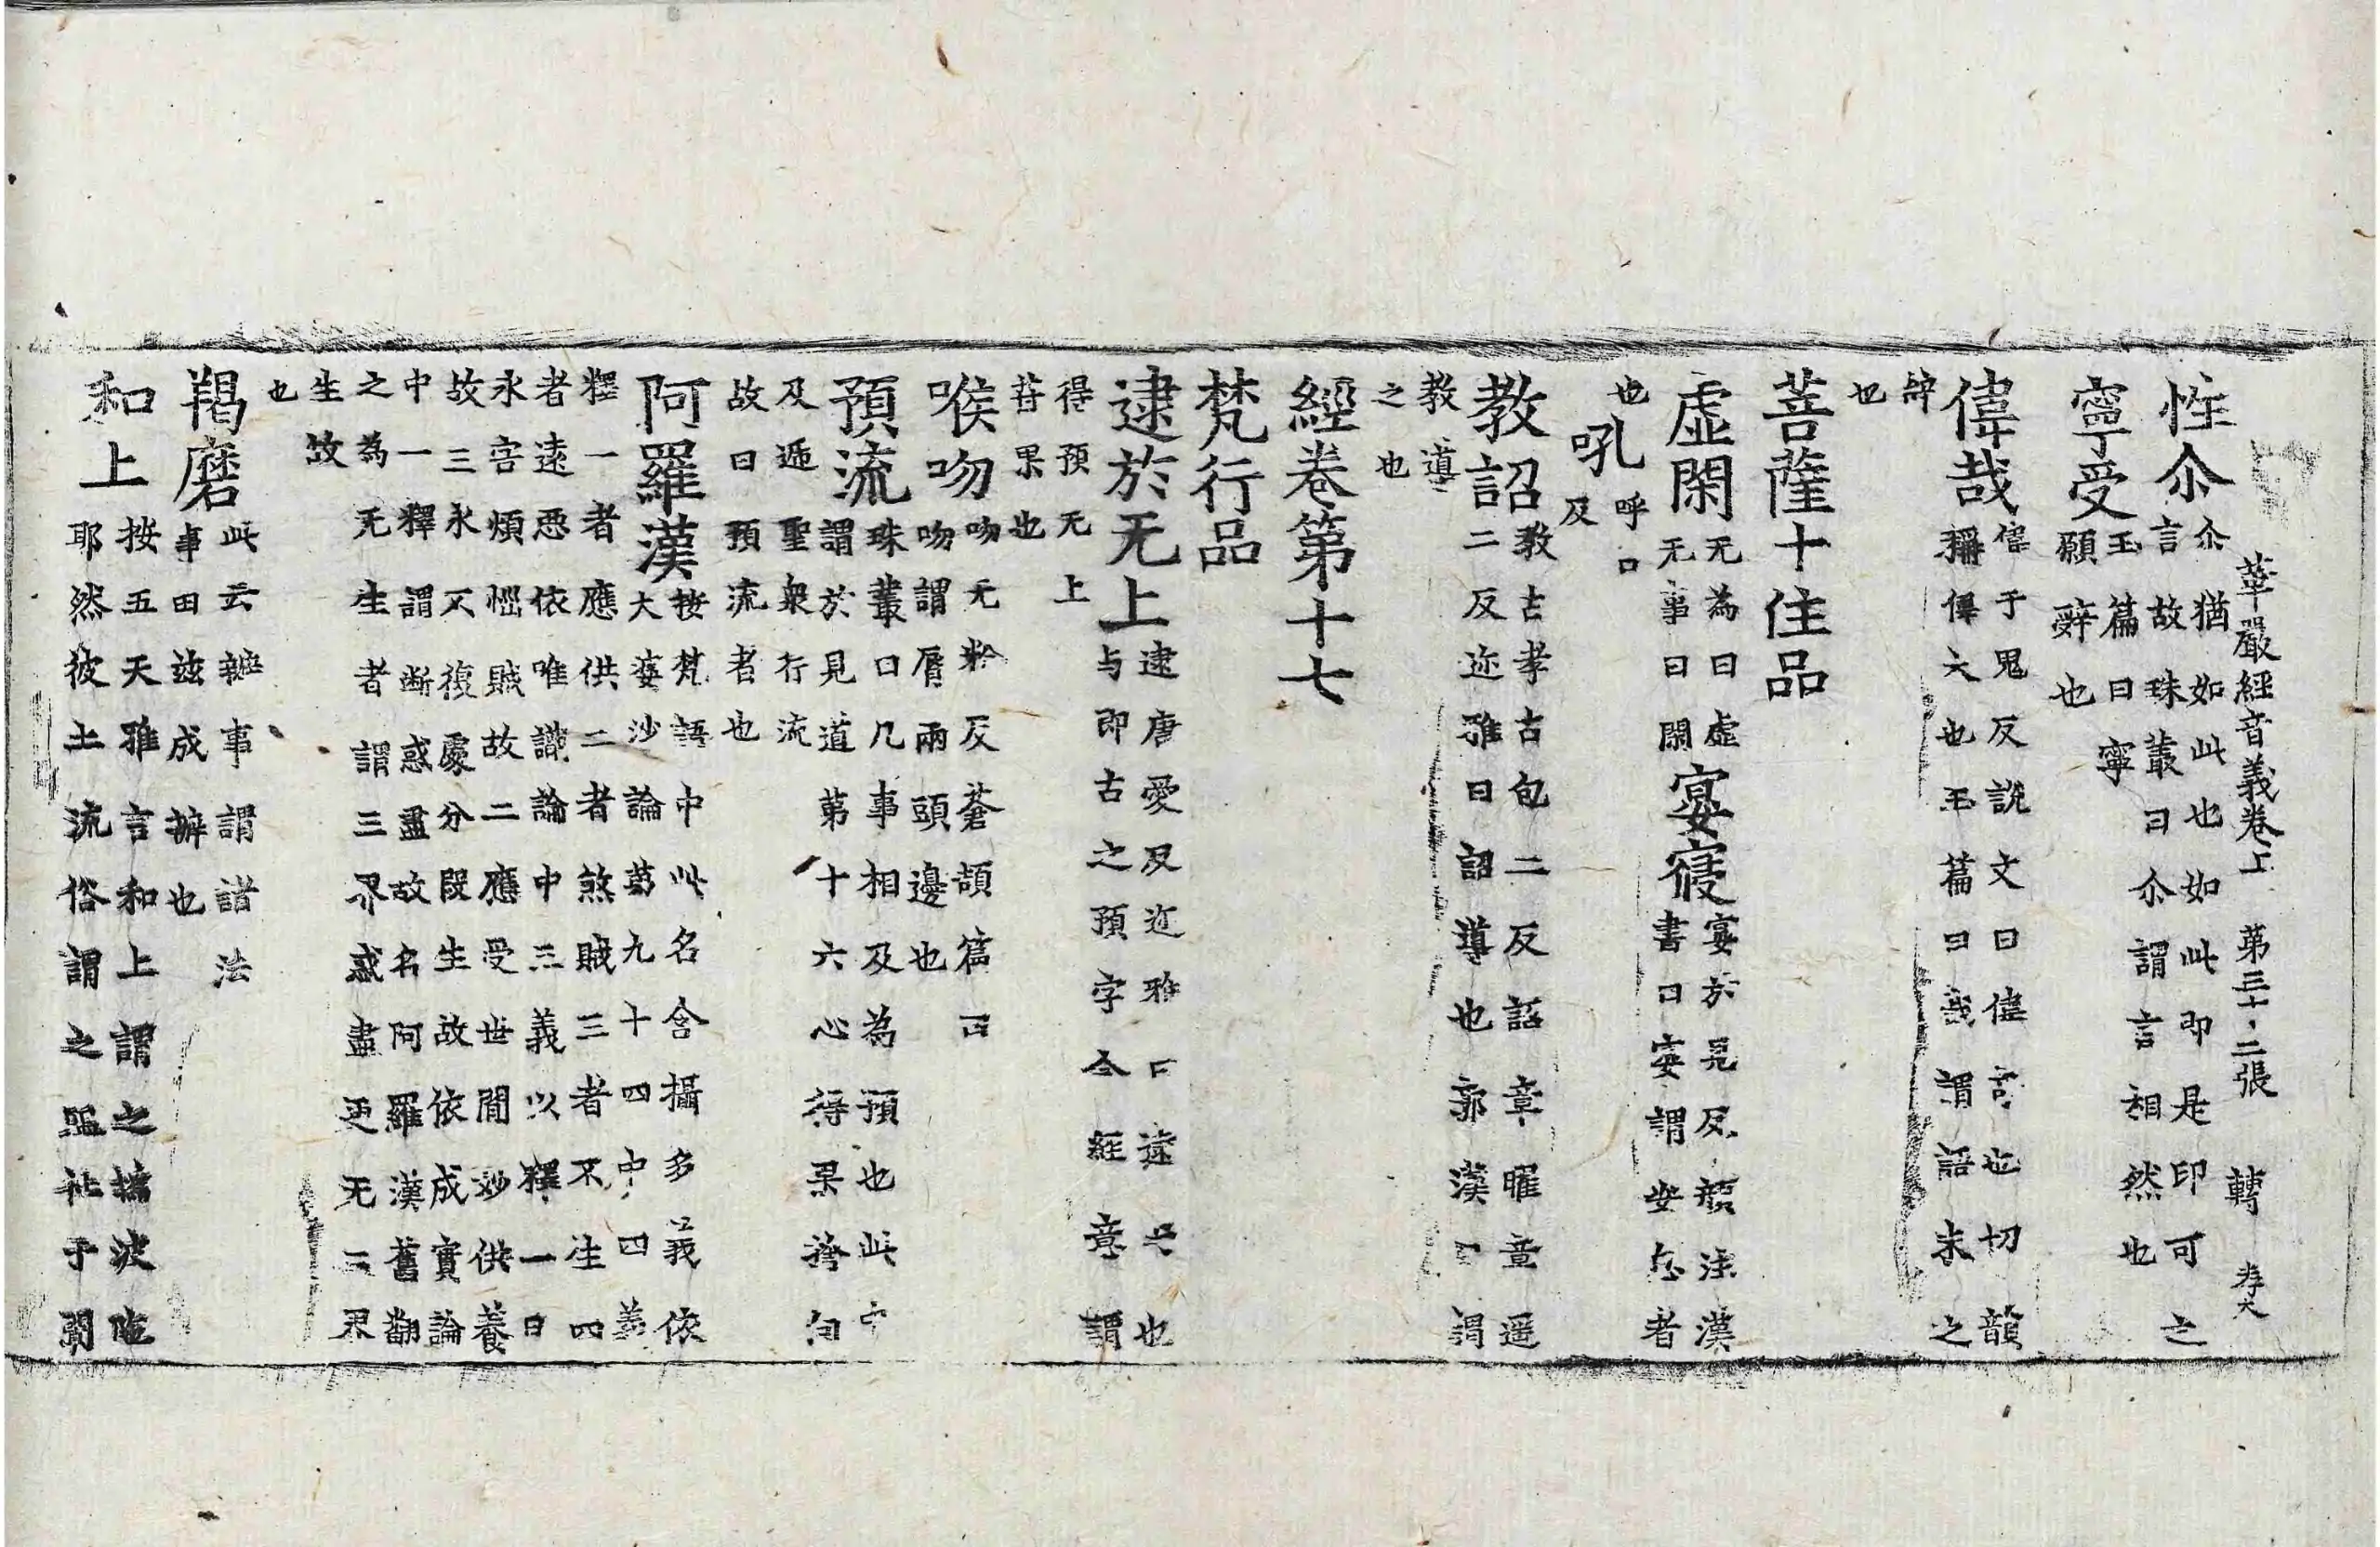 華嚴經音義卷上 第三十二張 轉
性尒
尒猶如此也如此即是印可之
言故珠叢曰尒謂言相然也
寧受
玉篇曰寧
願辭也
偉哉
偉于鬼反說文曰偉奇也切韻
稱偉大也玉篇曰哉謂語末之
辞
也
菩薩十住品
虛閑
无為曰虛
无事曰閑
宴寢
宴於見反顔注漢
書曰宴謂安息者
也
吼
呼口
反
教詔
教古孝古包二反詔章曜章遥
二反迩雅曰詔導也郭漢曰謂
教導
之也
經卷第十七
梵行品
逮於无上
逮唐愛反迩雅曰逮及也
与即古之預字今經意謂
得預无上
菩果也
喉吻
吻无粉反蒼頡篇曰
吻謂脣兩頭邊也
預流
珠叢曰凡事相及為預也此
謂於見道第十六心得果
及逓聖衆行流
故曰預流者也
阿羅漢
按梵語中此名含攝多義依
大婆沙論第九十四中四義
釋一者應供二者煞賊三者不生四
者遠惡依唯識論中三義以釋一曰
永害煩惱賊故二應受世閒妙供養
故三永不復處分段生故依成實論
中一釋謂斷惑盡故名阿羅漢舊翻
之為无生者謂三界惑盡更无三界
生故
也
羯磨
此云辦事謂諸法
事由玆成辦也
和上
按五天雅言和上謂之塢波陁
耶然彼土流俗謂之殟社于闐